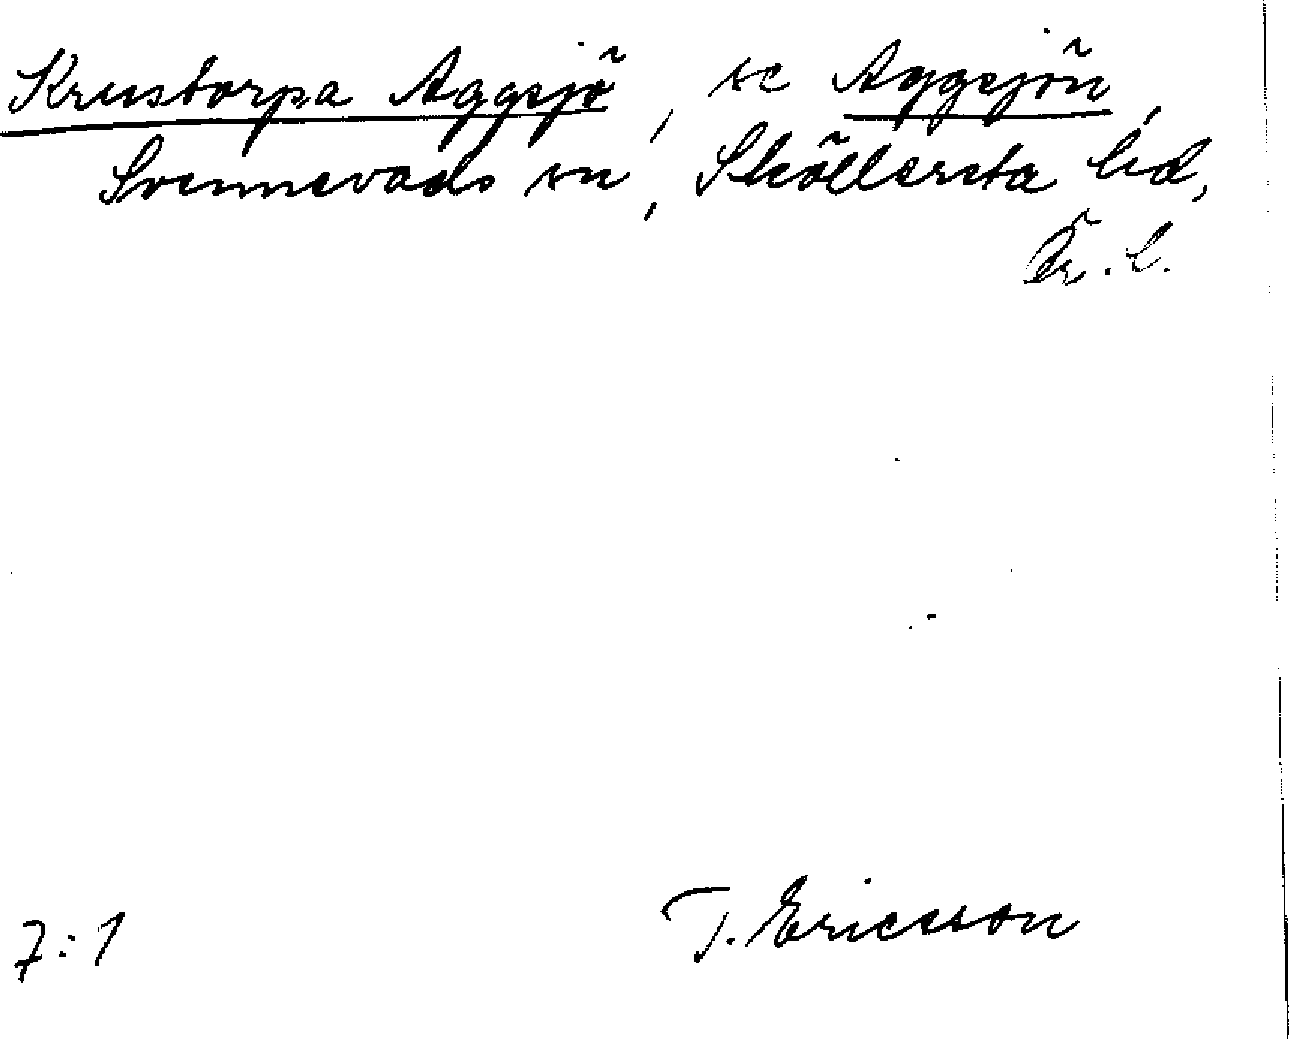 Krustorpa Aggsjö, se Aggsjön,
Svennevads sn, Sköllersta hd,
Ör. l.
7:1 T. Ericsson